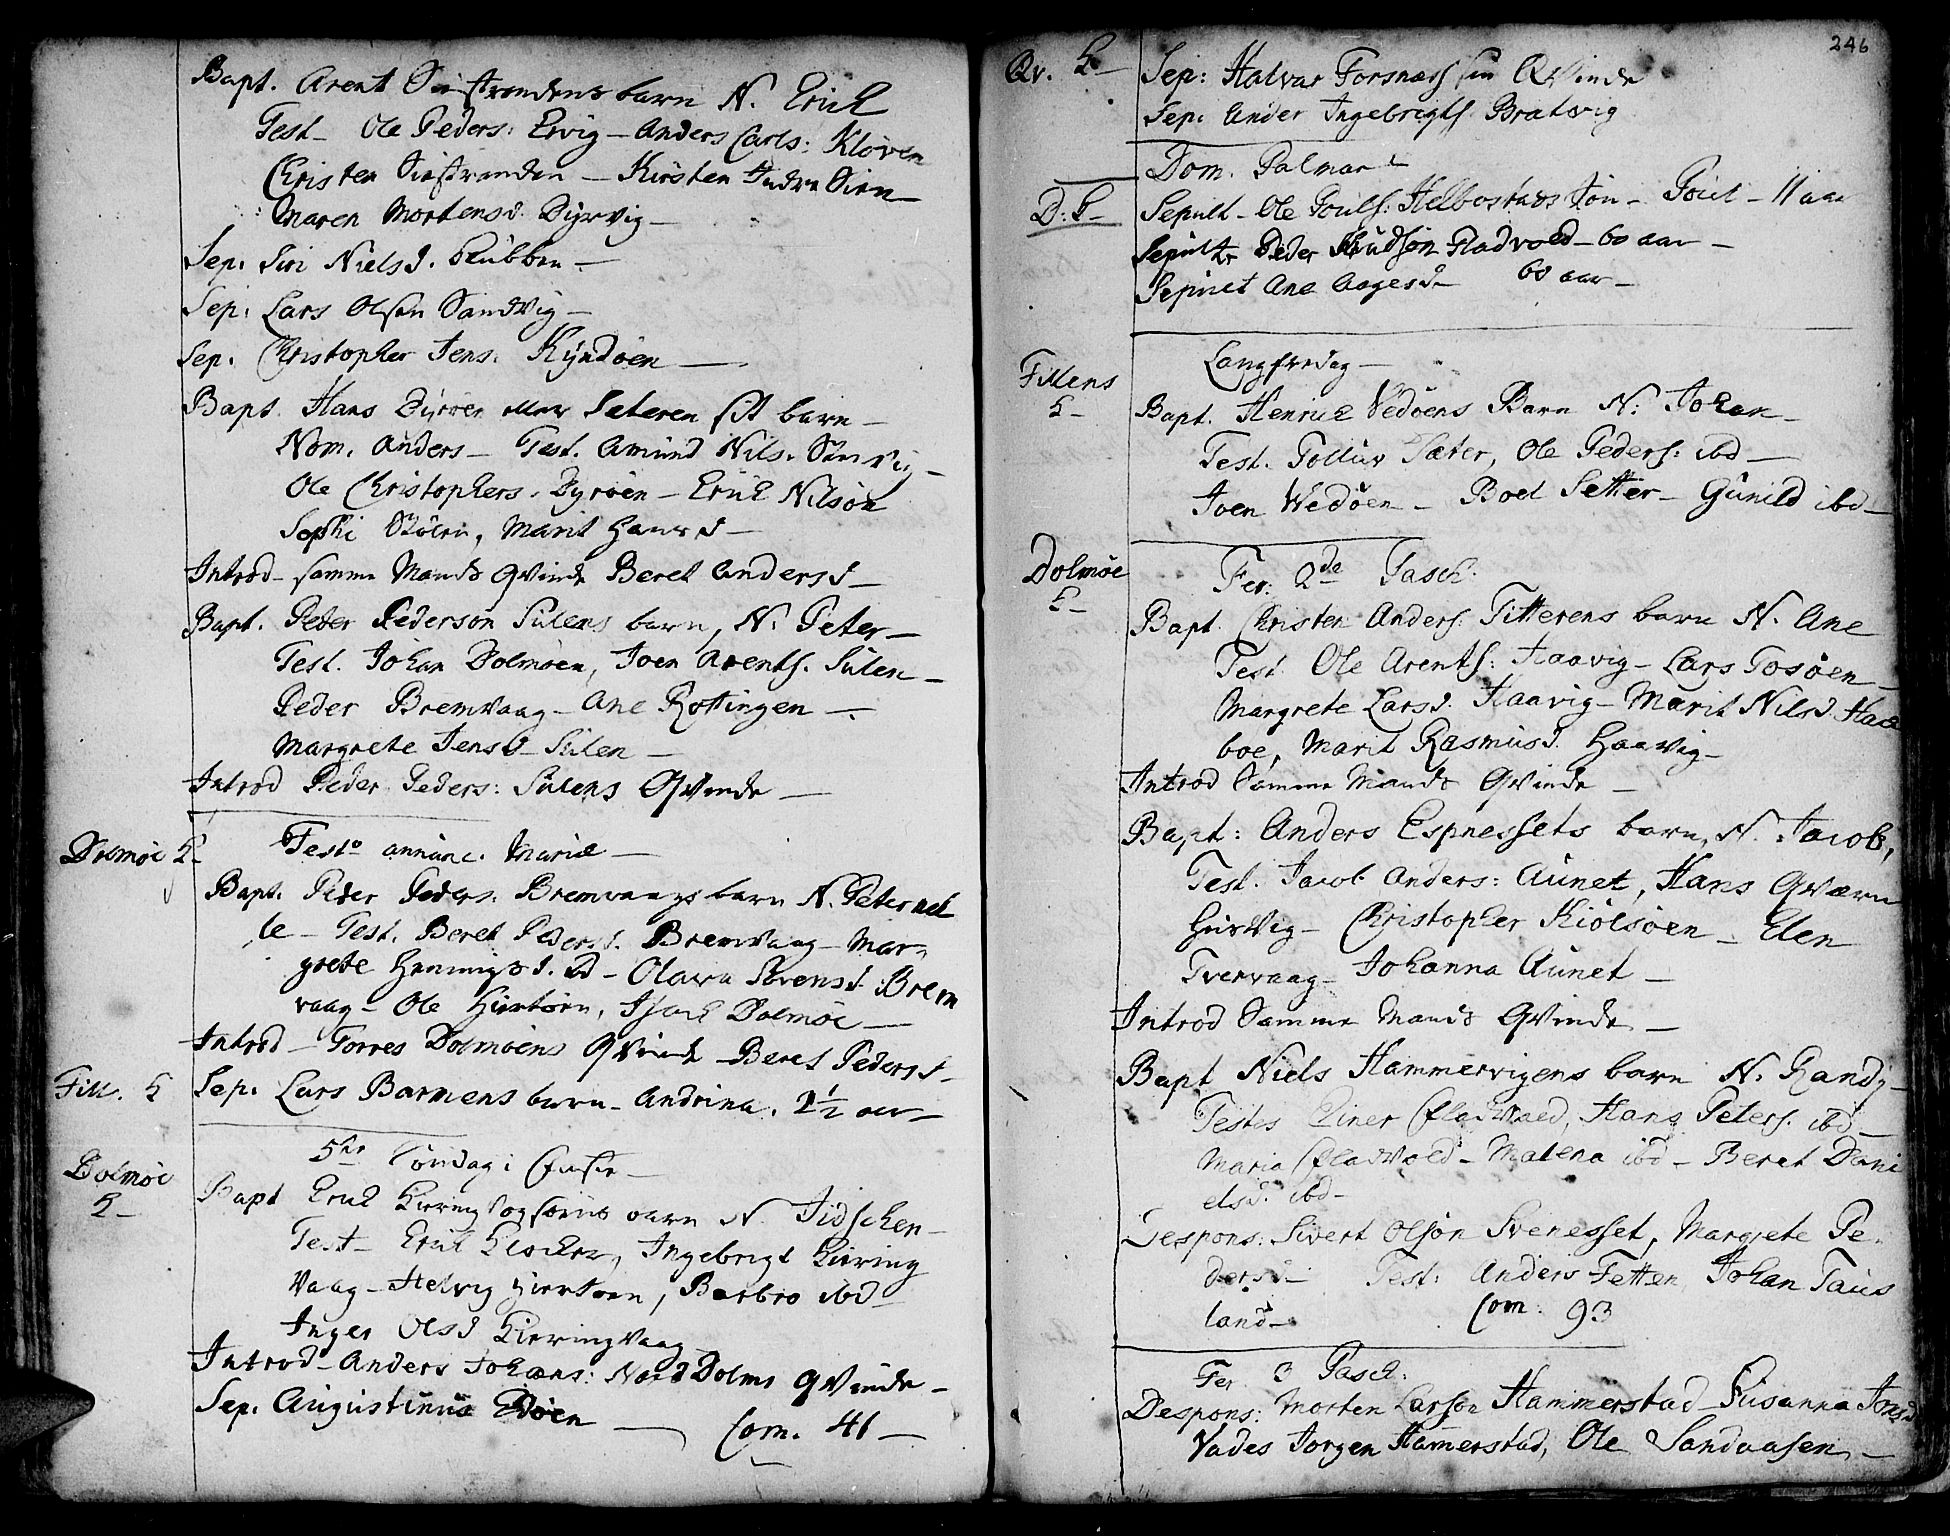 Bapt. Arent Sistrandens barn N. Erich
Test - Ole Peders: Ervig - Anders Carls: Kløven
Christen Sistranden - Kirsten Indre Sien
Maren Mortensd. Dyrvig -
Sep. Siri Nielsd. Stubben -
Sep. Lars Olsen Sandvig -
Sep. Christopher Jens. Kyndøen -
Bapt. Hans Dyrøen eller Sæteren sit barn -
Nom. Anders - Test. Amund Nils. -
Ole Christophers. Dyrøen - Erich Nilsøn
Sophi Stølen, Marit Hansd -
Introd - samme Mands Qvinde Beret Andersd -
Bapt. Peter Pederson Sulens barn, N. Peter -
Test. Johan Dolmøen, Joen Arents. Sulen -
Peder Bremvaag - Ane Rottingen -
Margrete Jensd - Sulen -
Introd Peder Peders: Sulens Qvinde -
Dolmøe K
Festo annunc. Mariæ -
Bapt. Peder Peders. Bremvaags barn N. Peternel
le - Test. Beret Pedersd. Bremvaag - Mar-
grete Henningsd. ibd - Olava Sørensd. Brem
vaag - Ole Hiertøen, Isach Dolmøe -
Introd - Torres Dolmøens Qvinde - Beret Pedersd -
Fill. K Sep. Lars Barmens barn - Andrina. 2 1/2 aar -
Dolmøe
K -
5te Søndag i Faste -
Bapt Erich Kierringvogsøens barn N. Jidschen -
Test - Erich Klocker, Ingebrigt Kierring
vaag - Helvig Hiertøen, Barbro ibd -
Inger Olsd Kierringvaag
Introd - Anders Johans: Nord Dolmø Qvinde -
Sep. Augustinus Edøen - Com. 41 -
246
Qv. K - Sep: Halvar Forsnæs sin Qvinde
Sep. Ander Ingebrigts. Bratvig
Dom. Palmar
D: K - Sepult - Ole Pouls: Helbostads Søn - Poul - 11 aar
Sepult Peder Knudsøn Fladvold - 60 aar -
Sepult Ane Aagesd - 60 aar -
Fillens
K -
Langfredag -
Bapt. Henrich Vedøens Barn N: Johan -
Test. Tolluv Sæter, Ole Peders: ibd -
Joen Wedøen - Boel Setter - Gunild ibd -
Dolmøe
K -
Fer: 2de Pasch:
Bapt. Christen Anders. Titterens barn N. Ane
Test. Ole Arents: Haavig - Lars Tosøen -
Margrete Larsd. Haavig - Marit Nilsd. Hae
boe, Marit Rasmusd. Haavig -
Introd Samme Mands Qvinde -
Bapt: Anders Espnessets barn, N. Jacob,
Test. Jacob Anders: Aunet, Hans Qværn
Hurvig - Christopher Kiølsøen - Elen
Tvervaag - Johanna Aunet -
Introd Samme Mands Qvinde -
Bapt Niels Hammervigens barn N. Randj -
Testes Einer Fladvold, Hans Peters. ibd -
Maria Fladvold - Malena ibd - Beret Dani
elsd. ibd -
Despons: Sivert Olsøn Svenesset, Margrete Pe.
dersd - Test: Anders Fetten Johan Taus
land - Com: 93
Fer 3 Pasch.
Despons: Morten Larson Hammerstad - Susanna Jonsd
Vades Jorgen Hamerstad, Ole Sandaasen -